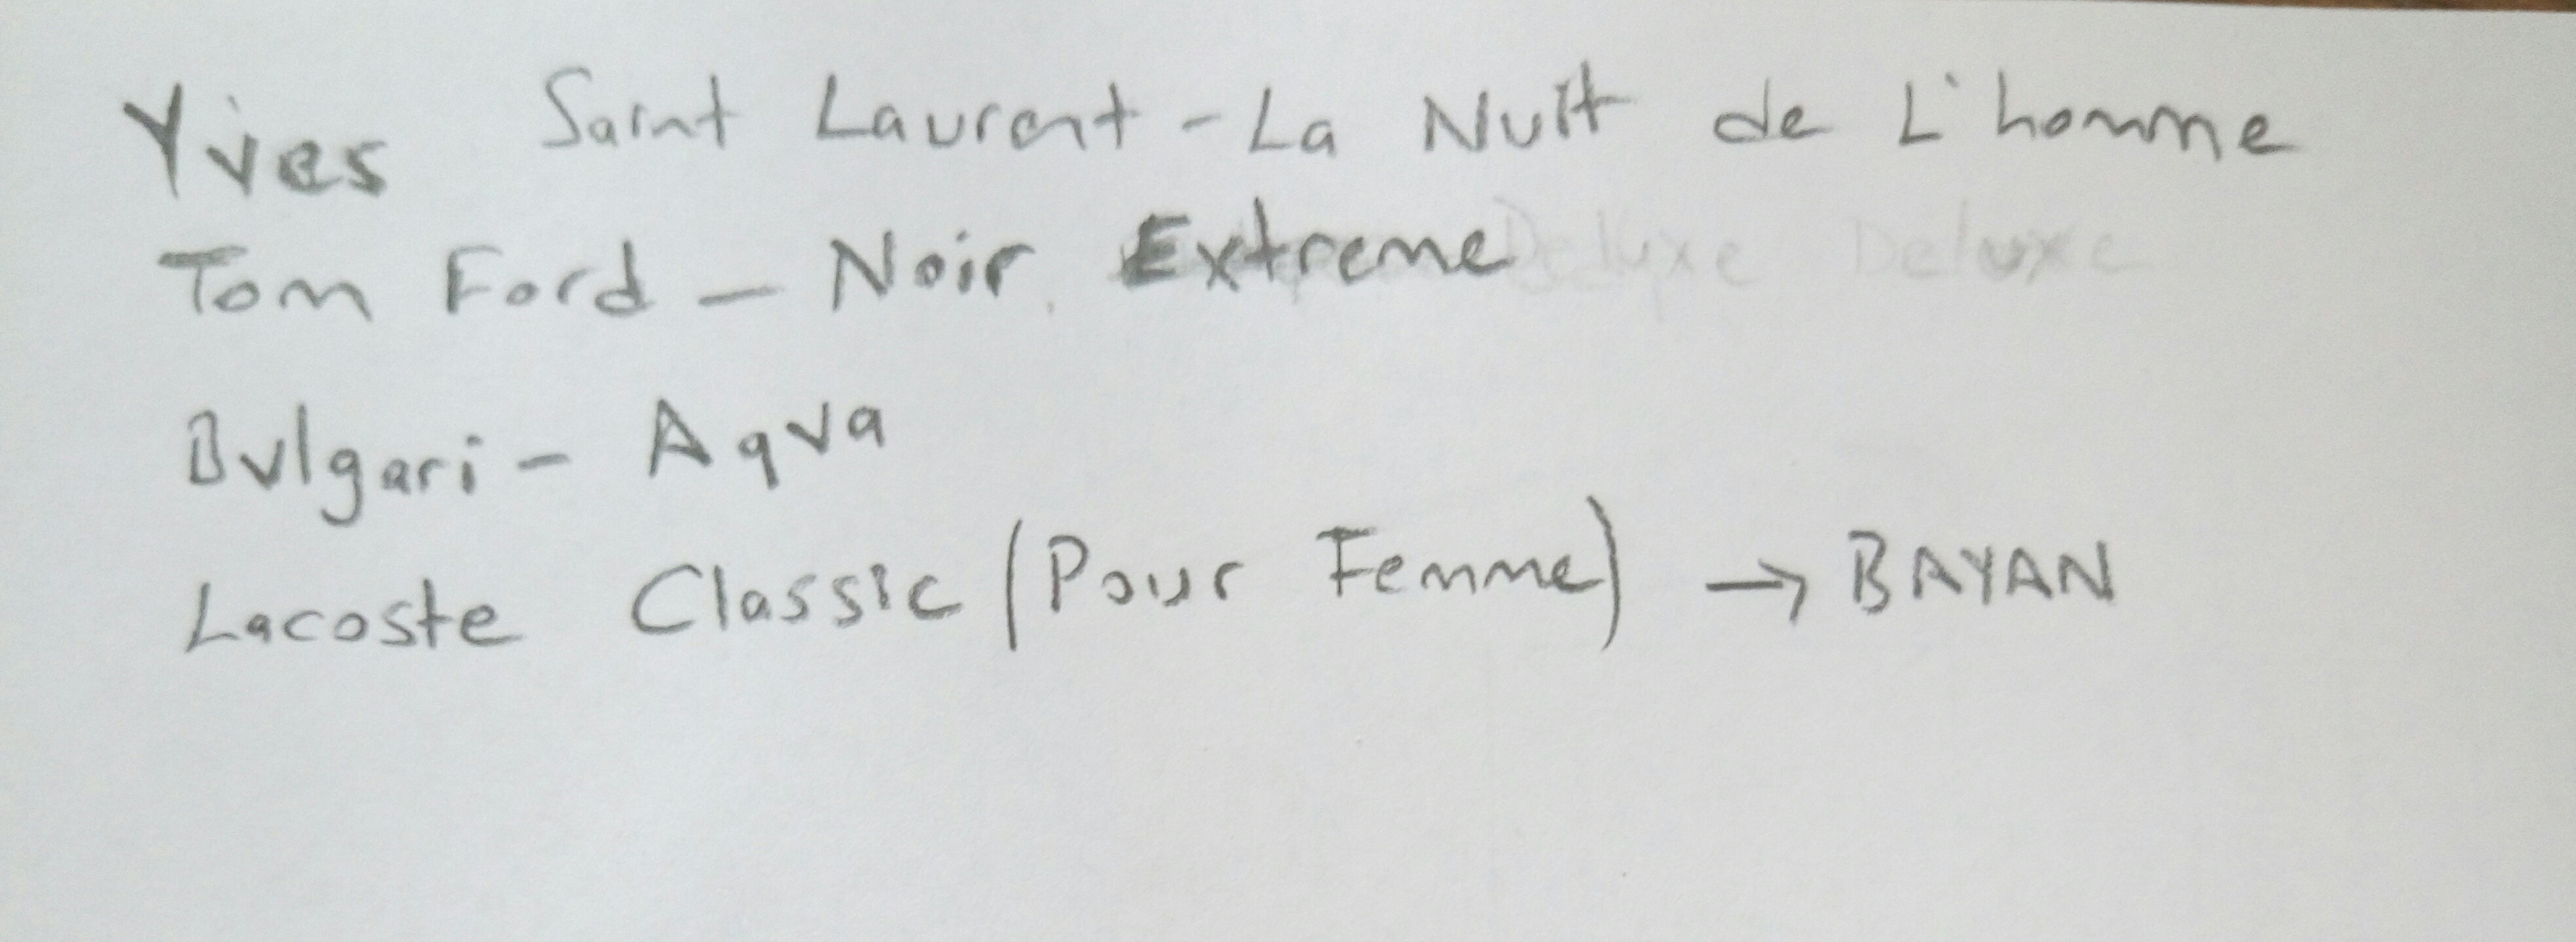 Yves Saint Laurent - La Nuit de L'homme
Tom Ford - Noir Extreme Deluxe Deluxe
Bvlgari - Aqva
Lacoste Classic (Pour Femme) → BAYAN